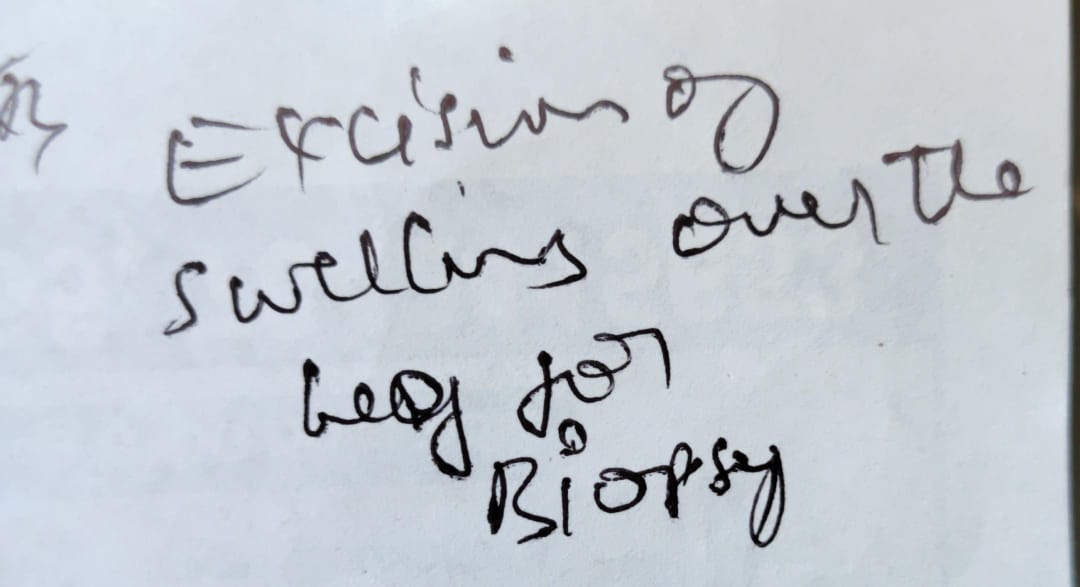 Excision of
swelling over the
for
Biopsy